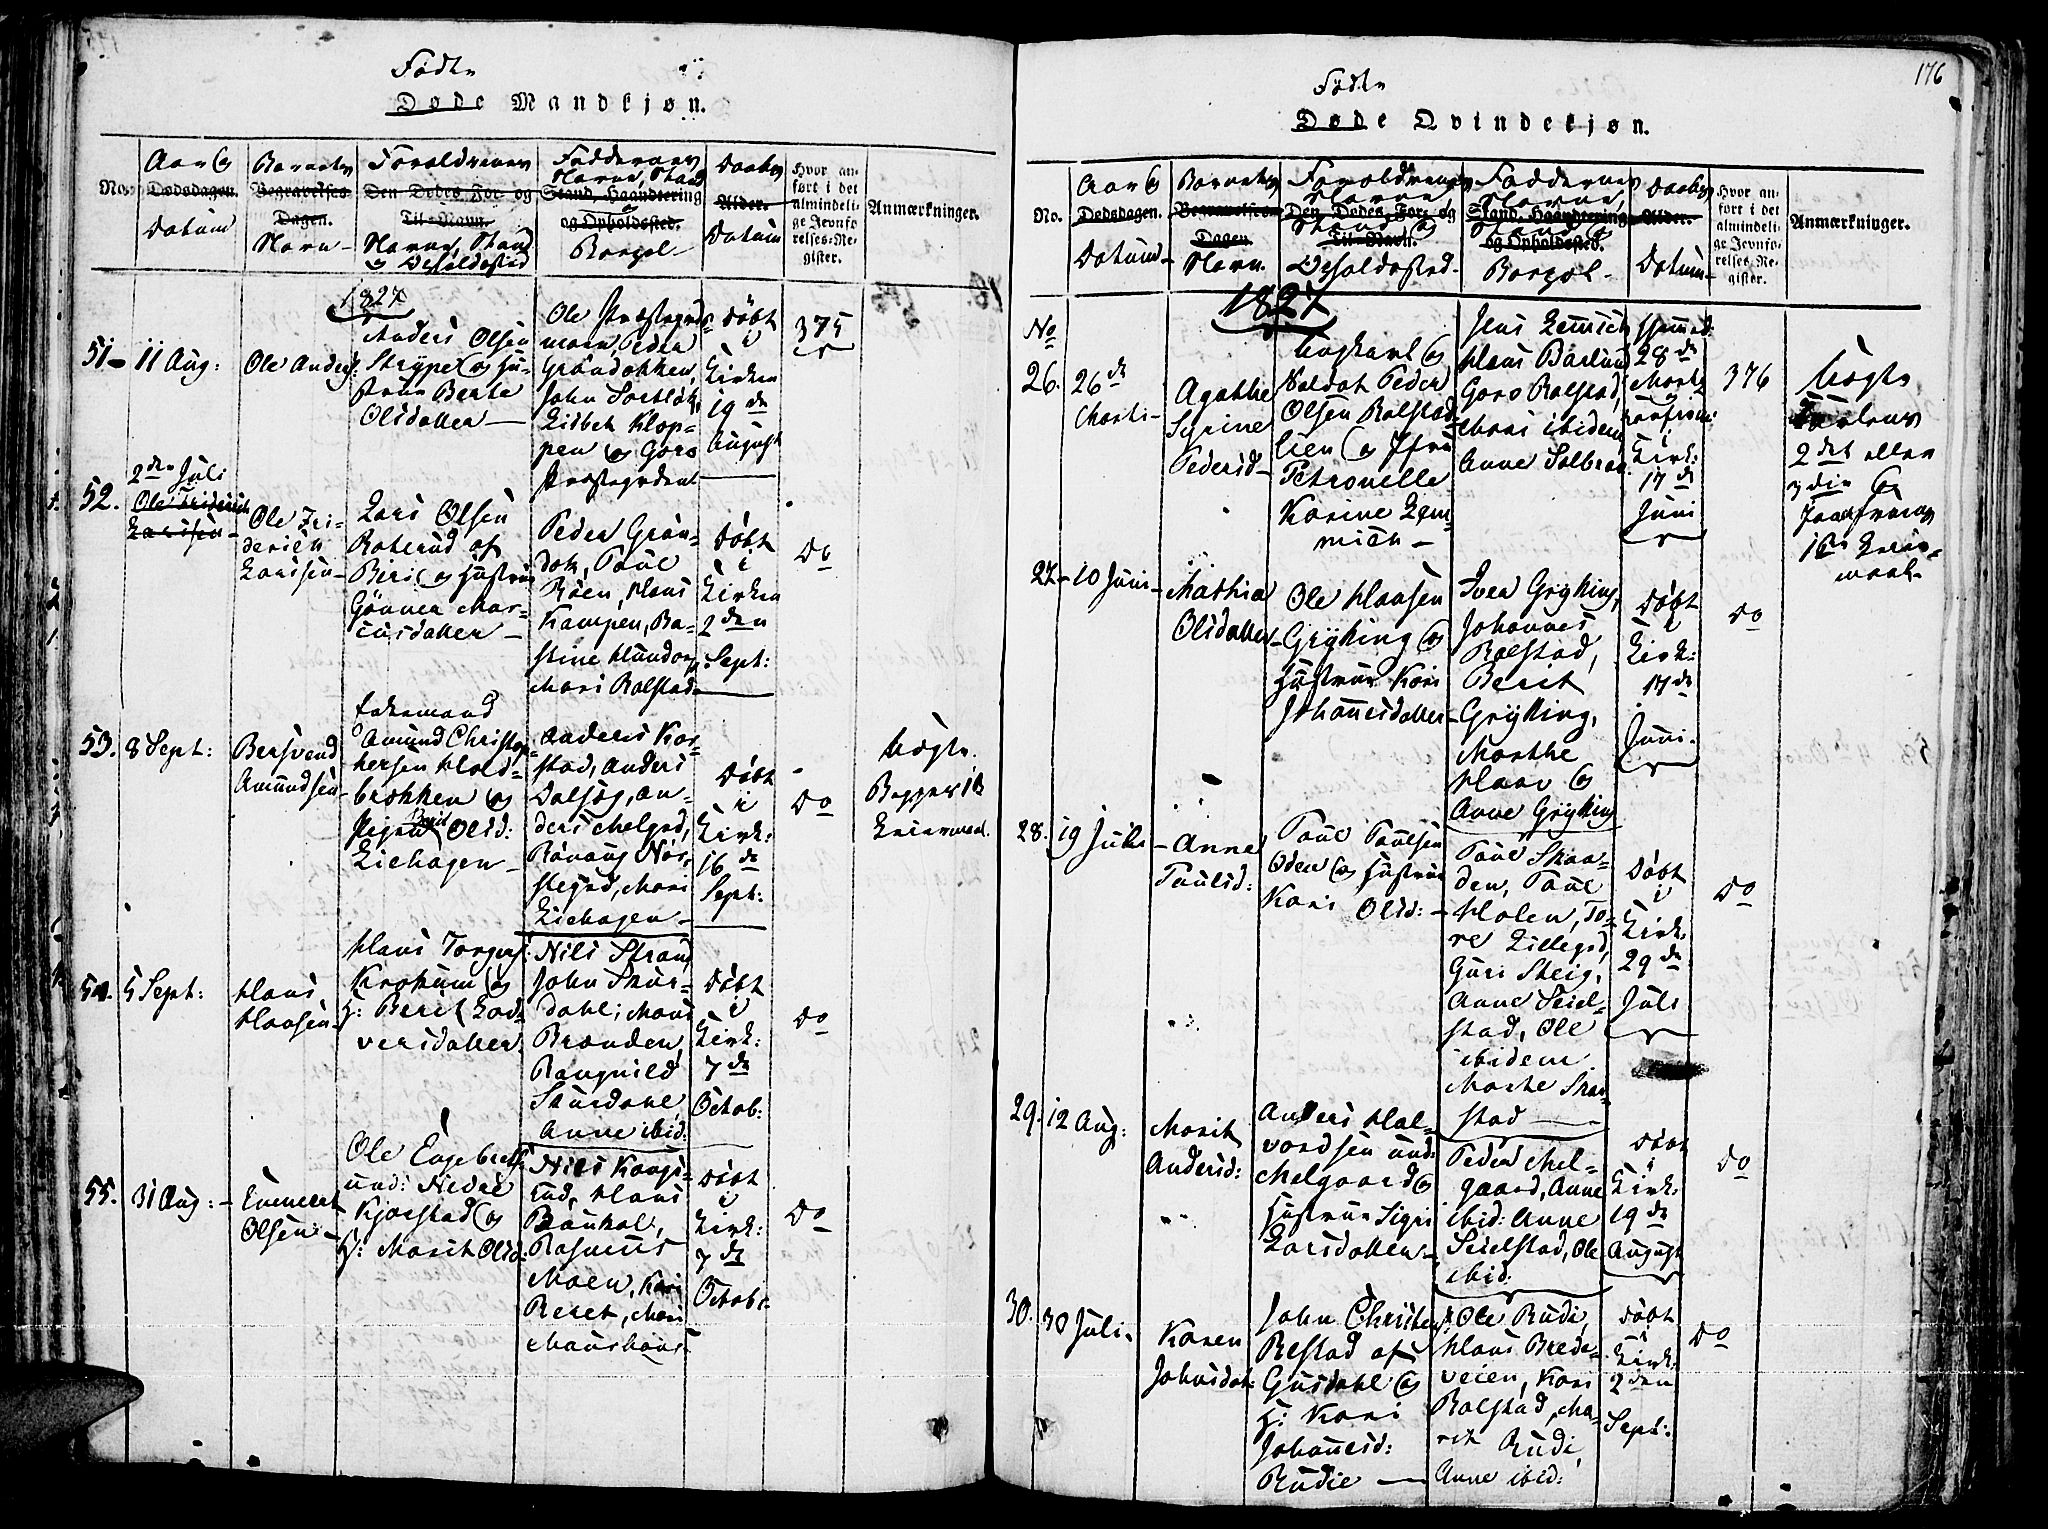 Fødte
Døde Mandkjøn.
No.
Aar og
Dødsdagen.
Datum
Barnets
Begravelses
Dagen.
Navn
Forældrenes
Den Dødes For- og
Til-Navn.
Navne, Stand
og Opholdssted
Faddernes
Navne, Stand
Stand, Haandtering
og Opholdssted.
Bopæl
Daabs
Alder.
Datum
Hvor an-
ført i det
almindeli-
ge Jevnfø-
relses-Re-
gister.
Anmærkninger.
1827
51
11 Aug:
Ole Anders:
Anders Olsen
Strype og Hu-
strue Berte
Olsdatter
Ole Præstegrds-
moen, Peder
Grøndokken,
John Sortløk,
Lisbet Klop-
pen og Goro
Præstegrdent
Døbt
i
Kirken
19 de
August
375
52.
2den Juli
Ole Friderich
Larssen
Ole Fri-
derich
Larssen
Lars Olsen
Roterud af
Biri og Hustrue
Gønner Mar-
cusdatter
Peder Grøn-
dok, Poul
Røen, Hans
Kampen, Ba-
stine Hundorp,
Mari Rolstad
Døbt
i
Kirken
2den
Sept:
Do
53.
8 Sept:
Bersvend
Amundsen
Enkemand
Amund Christop-
hersen Hold-
brokken og
Pigen Berit Olsd:
Liehagen
Anders Kor-
stad, Anders
Dalseg, An-
ders Melgrd,
Rønnaug Nør-
stegrd, Mari
Liehagen
Døbt
i
Kirk:
16 de
Sept:
Do
Uægte.
Begges 1te
Leiermaal.
54.
5 Sept:
Hans
Hansen
Hans Torgers:
Krokum og
H: Berit Lod-
versdatter
Nils Strand
John Skurs-
dahl, Mari
Branden,
Rangnild
Skurdahl,
Anne ibid:
Døbt
i
Kirk:
7 de
Octob:
Do
55.
31 Aug:
Engebret
Olsen
Ole Engebrets:
und: Nedre
Kjorstad og
H: Marit Olsd:
Nils Kongs-
lud, Hans
Baukol,
Rasmus
Moen, Kari
Beret, Mari
Døbt
i
Kirk:
7 de
Octobr:
Do
176
Fødte
Døde Qvindekjøn.
No.
Aar og
Dødsdagen.
Datum
Barnets
Begravelses
Dagen.
Navn.
Forældrenes
Navne,
Den Dødes For- og
Stand og
Til-Navn.
Opholdssted
Faddernes
Navne,
Stand, Haandtering
Stand og
og Opholdssted.
Bopæl
Daabs
Alder.
Datum
Hvor an-
ført i det
almindeli-
ge Jevnfø-
relses-Re-
gister.
Anmærkninger.
No
1827
26.
26 de
Marts
Agathe
Syrine
Pedersd
Ungkarl og
Soldat Peder
Olsen Rolstad-
lien og Jfru
Petronelle
Karine Lem-
mich
Jens Lemmich
Hans Barlund
Goro Rolstad,
Mari ibidem
Anne Solbraa
Hjemmed:
28 de
Marts
Kirk:
17 de
Juni
376
Uægte
2det eller
3die og
Jomfruens
1te Leier-
maal.
27
10 Juni
Mathia
Olsdatter
Ole Hansen
Gryting og
Hustrue Kari
Johannesdatter
Iver Gryting,
Johannes
Rolstad,
Berit
Gryting,
Marthe
Haav og
Anne Gryting
Døbt
i
Kirk:
17 de
Juni
Do
28.
19 Juli
Anne
Poulsd:
Poul Poulsen
Oden og Hustrue
Kari Olsd:
Poul Skaa-
den, Poul
Holen, To-
re Lillegrd,
Guri Steig,
Anne Seiel-
stad, Ole
ibidem
Marte Skar-
stad
Døbt
i
Kirk:
29 de
Juli
Do
29.
12 Aug:
Marit
Andersd:
Anders Hal-
vordsen und:
Melgaard og
Hustrue Sigri
Larsdatter
Peder Mel-
gaard, Anne
ibid: Anne
Seielstad, Ole
ibid:
Døbt
i
Kirk:
19 de
August
Do
30.
30 Juli
Karen
Johnsdat:
John Christens:
Restad af
Gusdahl og
H: Kari
Johannesd:
Rudie
Ole Rudi,
Hans Brede-
veien, Kari
Rolstad, Ma-
rit Rudi,
Anne ibid:
Døbt
i
Kirk:
2den
Sept:
Do